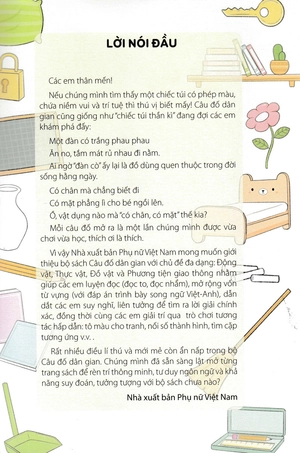 LỜI NÓI ĐẦU
Các em thân mến!
Nếu chúng mình tìm thấy một chiếc túi có phép màu,
chứa niềm vui và trí tuệ thì thú vị biết mấy! Câu đố dân
gian cũng giống như "chiếc túi thần kì" đang đợi các em
khám phá đấy:
Một đàn cò trắng phau phau
Ăn no, tắm mát rủ nhau đi nằm.
Ai ngờ "đàn cò" ấy lại là đồ dùng quen thuộc trong đời
sống hằng ngày.
Có chân mà chẳng biết đi
Có mặt phẳng lì cho bé ngồi lên.
Ồ, vật dụng nào mà "có chân, có mặt" thế kia?
Mỗi câu đố mở ra là một lần chúng mình được vừa
chơi vừa học, thích ơi là thích.
Vì vậy Nhà xuất bản Phụ nữ Việt Nam mong muốn giới
thiệu bộ sách Câu đố dân gian với chủ đề đa dạng: Động
vật, Thực vật, Đồ vật và Phương tiện giao thông nhằm
giúp các em luyện đọc (đọc to, đọc nhẩm), mở rộng vốn
từ vựng (với đáp án trình bày song ngữ Việt-Anh), dẫn
dắt các em suy nghĩ, liên tưởng để tìm ra lời giải chính
xác, đồng thời cùng các em giải trí qua trò chơi tương
tác hấp dẫn: tô màu cho tranh, nối số thành hình, tìm cặp
tương ứng v.v. .
Rất nhiều điều lí thú và mới mẻ còn ẩn nấp trong bộ
Câu đố dân gian. Chúng mình đã sẵn sàng lật mở từng
trang sách để rèn trí thông minh, tư duy ngôn ngữ và khả
năng suy đoán, tưởng tượng với bộ sách chưa nào?
Nhà xuất bản Phụ nữ Việt Nam